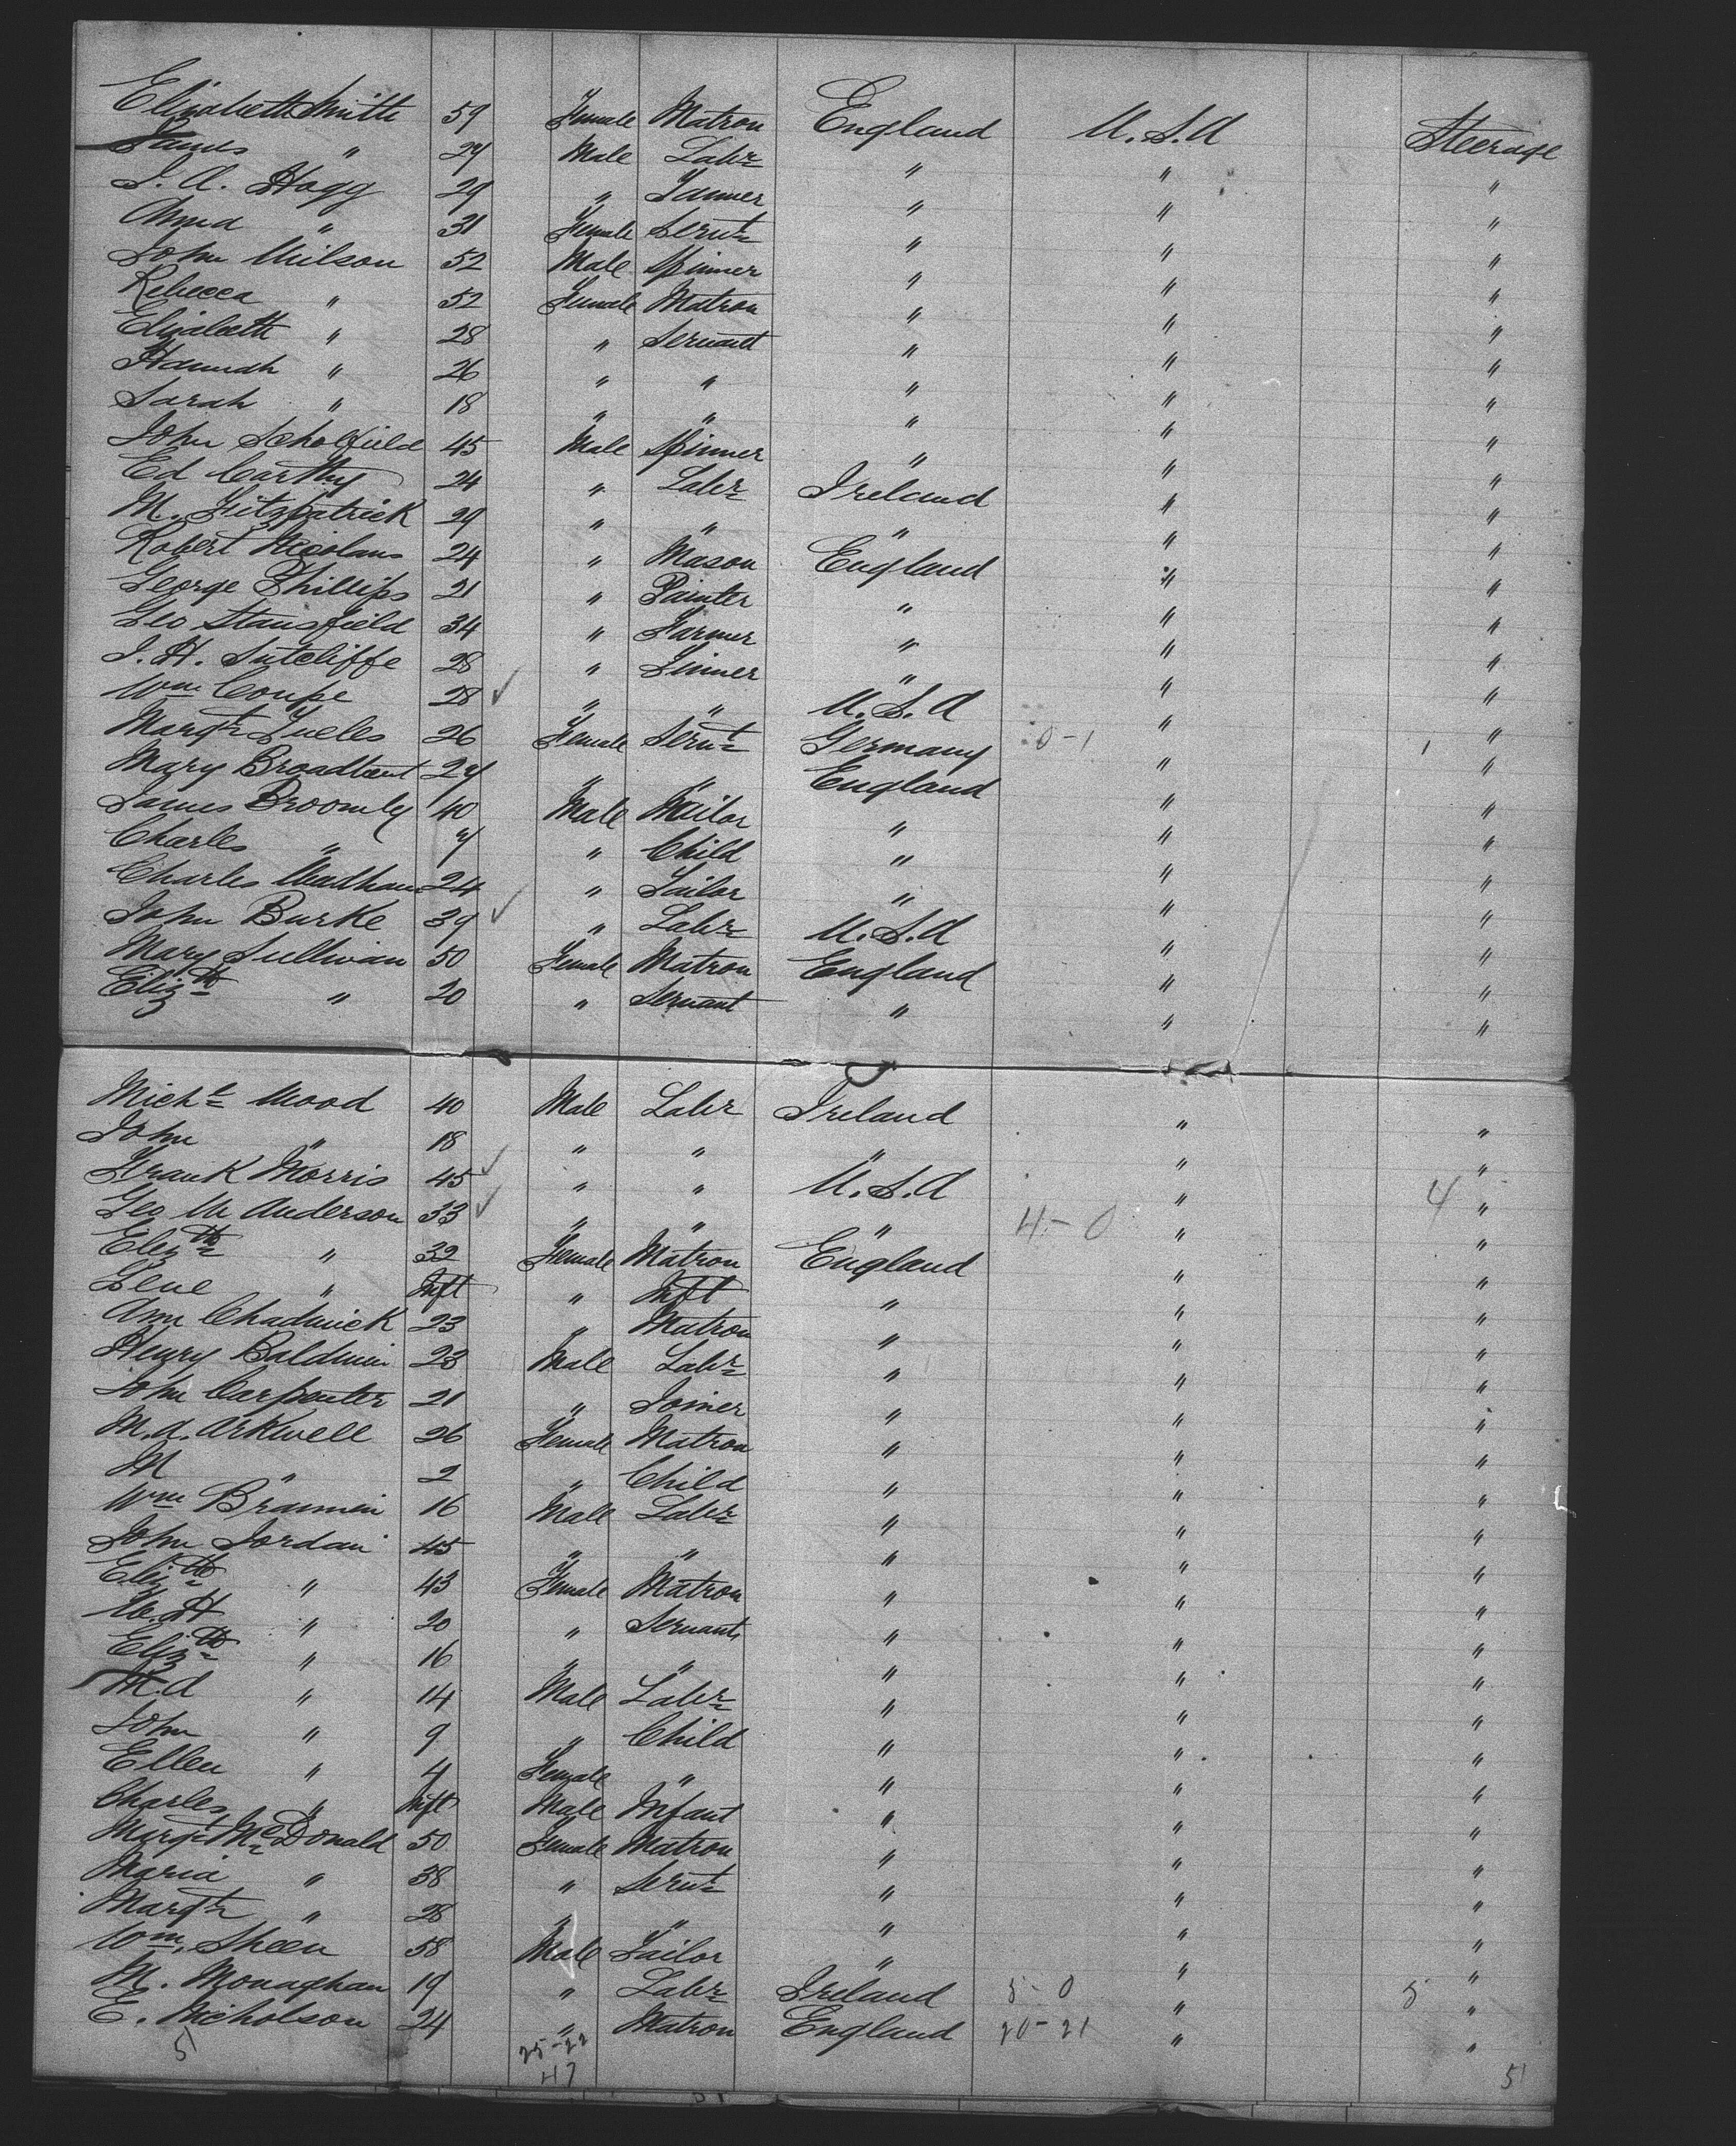 Elizabeth Smith 59 Female Matron England U.S.A Steerage
James " 27 Male Labr " " "
J. A. Hogg 29 " Tanner " " "
Anna " 31 Female Servt " " "
John Wilson 52 Male Spinner " " "
Rebecca " 52 Female Matron " " "
Elizabeth " 28 " Servant " " "
Hannah " 26 " " " " "
Sarah " 18 " " " " "
John Scholfield 45 Male Spinner " " "
Ed Carthy 24 " Labr Ireland " "
M. Fitzpatrick 29 " " " " "
Robert Nicolaus 24 " Mason England " "
George Phillips 21 " Painter " " "
Geo Stansfield 34 " Farmer " " "
J. H. Sutcliffe 28 " " " "
Wm Coupe 28 ✓ " " U.S.A " "
Margt 26 Female Servt Germany 0-1 " 1 "
Mary Broadbent 27 " " England " "
James Broomly 40 Male " " "
Charles " 7 " Child " " "
Charles 24 " Tailor " " "
John Burke 39 ✓ " Labr U.S.A " "
Mary Sullivan 50 Female Matron England " "
Elizth " 20 " Servant " " "
Michl Wood 40 Male Labr Ireland " "
John " 18 " " " " "
Frank Morris 45 ✓ " " U.S.A " 4 "
Geo W Anderson 33 ✓ " " " 4-0 " "
Elizth " 32 Female Matron England " "
Lene " Inft " Inft " " "
Ann Chadwick 23 " Matron " " "
Henry Baldwin 23 Male Labr " " "
John Carpenter 21 " Joiner " " "
M.A. Arkwell 26 Female Matron " " "
M " 2 " Child " " "
Wm Brannin 16 Male Labr " " "
John Jordan 45 " " " " "
Elizth " 43 Female Matron " " "
H " 20 " Servant " " "
Elizth " 16 " " " " "
M.A " 14 Male Labr " " "
John " 9 " Child " " "
Ellen " 4 Female " " " "
Charles " Inft Male Infant " " "
Margt McDonald 50 Female Matron " " "
Maria " 38 " Servt " " "
Margt " 28 " " " " "
Wm Sheen 58 Male Tailor " " "
M. Monaghan 19 " Labr Ireland 5-0 " 5 "
E. Nicholson 24 " Matron England 20-21 " "
51 25-22 51
47